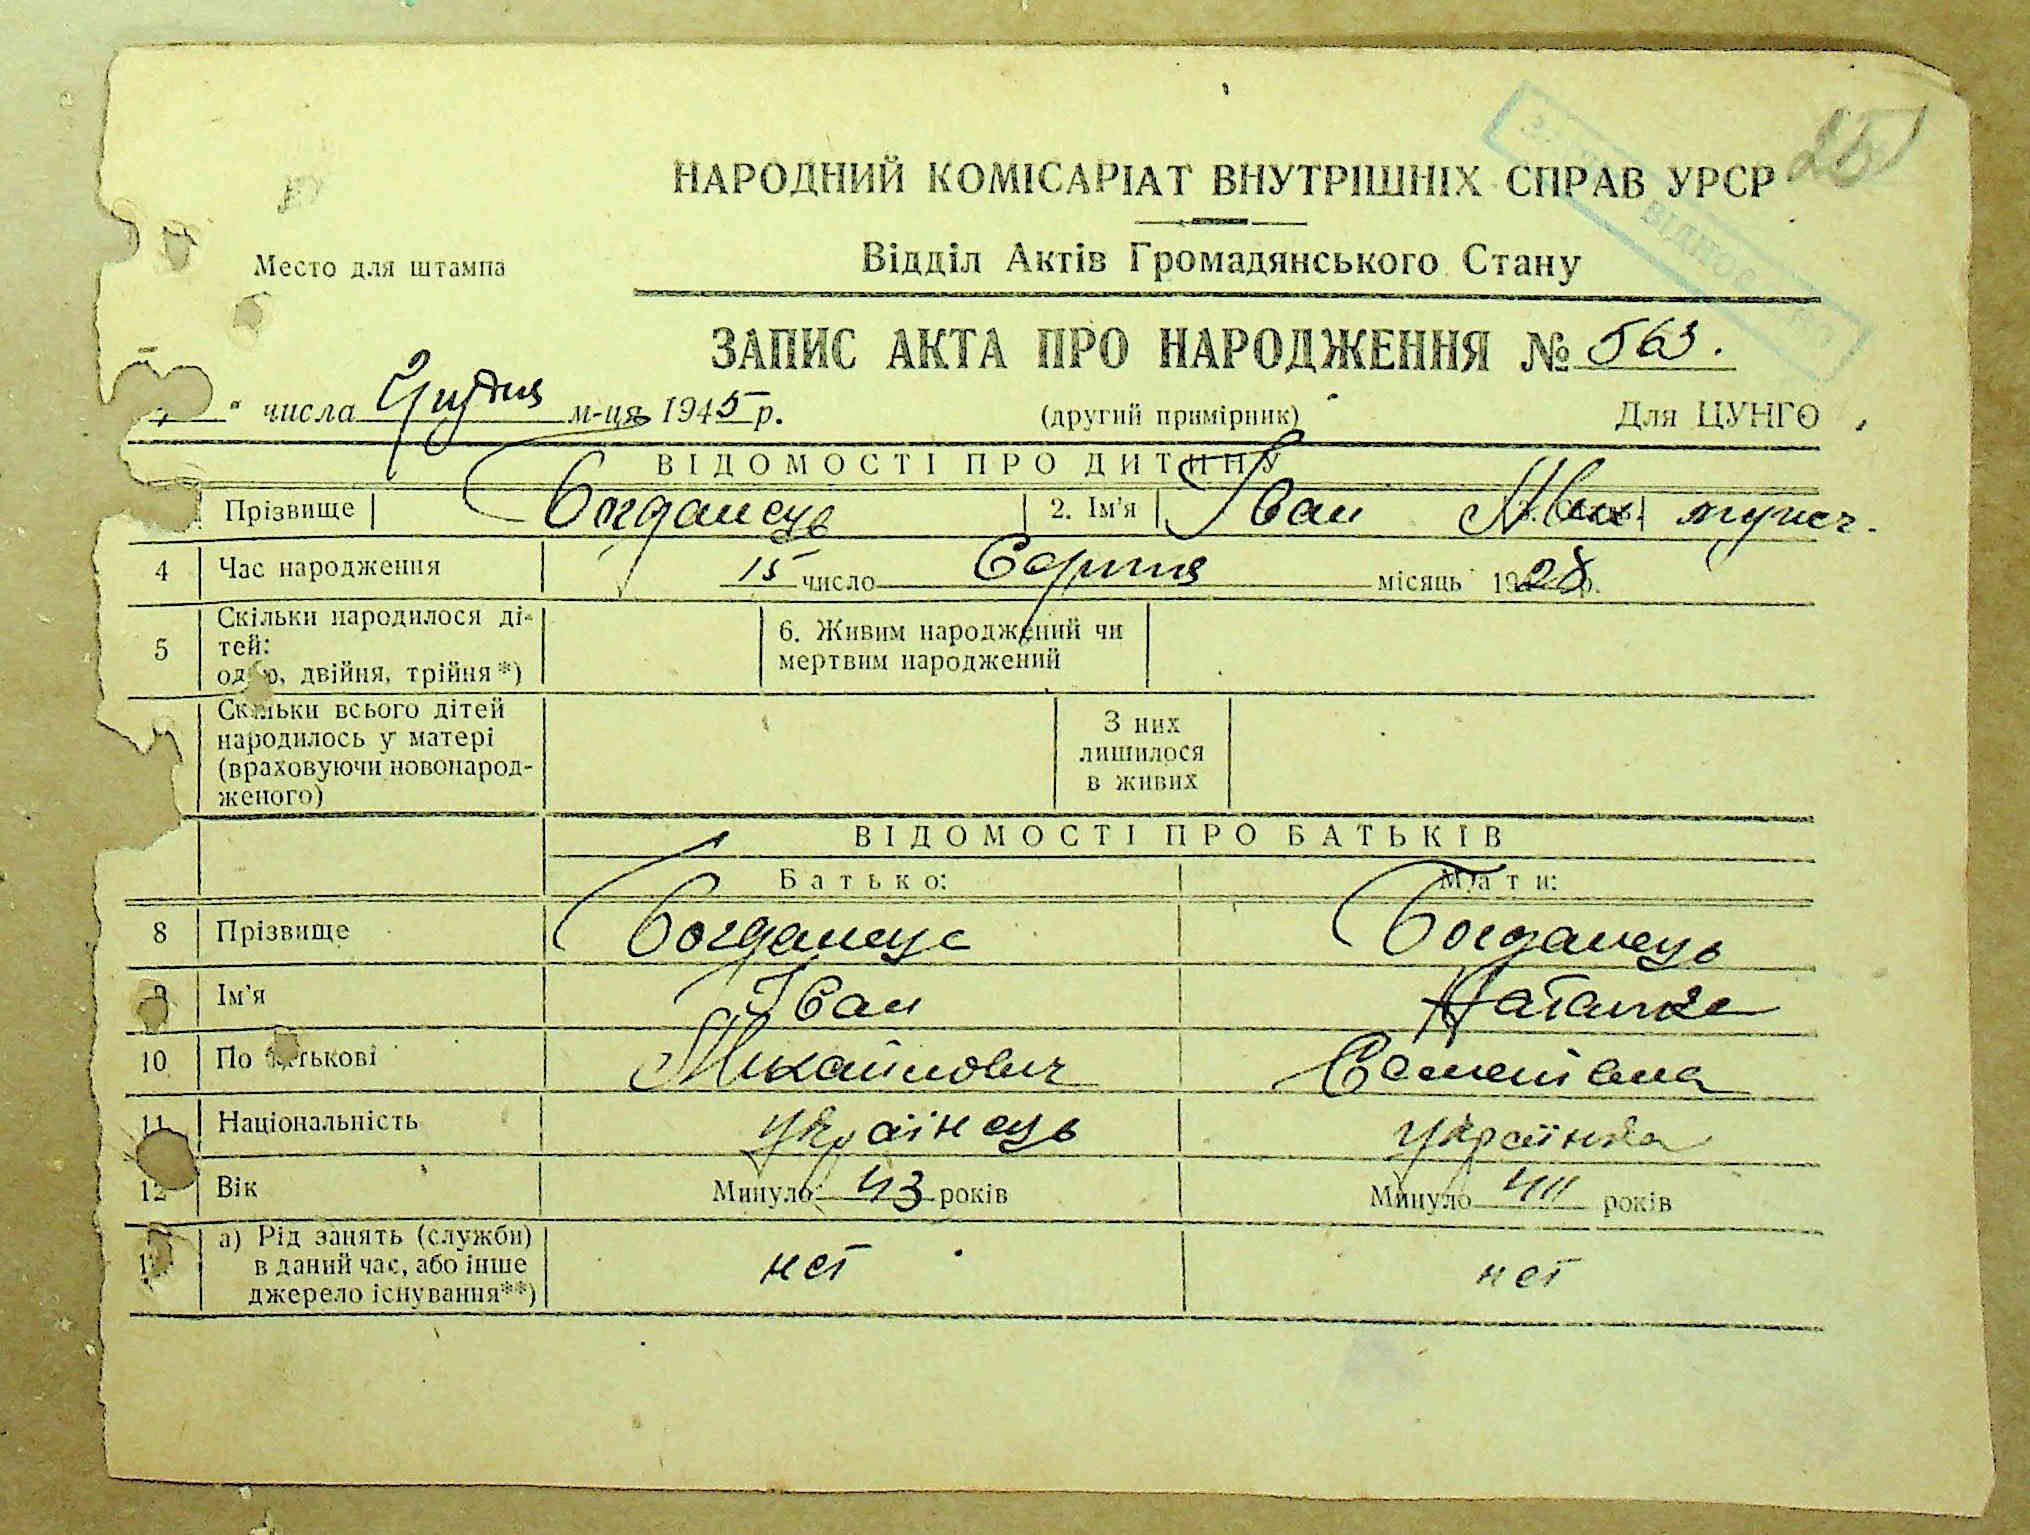 251
НАРОДНИЙ КОМІСАРІАТ ВНУТРІШНІХ СПРАВ УРСР
Место для штампа
Відділ Актів Громадянського Стану
ВІДНОВЛЕНО
ЗАПИС АКТА ПРО НАРОДЖЕННЯ № 563.
" числа Грудня м-ця 1945 р. (другий примірник) Для ЦУНГО
ВІДОМОСТІ ПРО ДИТИНУ
Прізвище Богданець 2. Ім'я Іван
4 Час народження 15 число Серпня місяць 1928 р.
5 Скільки народилося ді-
тей:
одно, двійня, трійня*) 6. Живим народжений чи
мертвим народжений
Скільки всього дітей
народилось у матері
(враховуючи новонарод-
женого) З них
лишилося
в живих
ВІДОМОСТІ ПРО БАТЬКІВ
Батько: Мати:
8 Прізвище Богданець Богданець
9 Ім'я Іван Наталка
10 По батькові Михайлович Семенівна
11 Національність українець українка
12 Вік Минуло 43 років Минуло років
а) Рід занять (служби)
в даний час, або інше
джерело існування**) нет нет